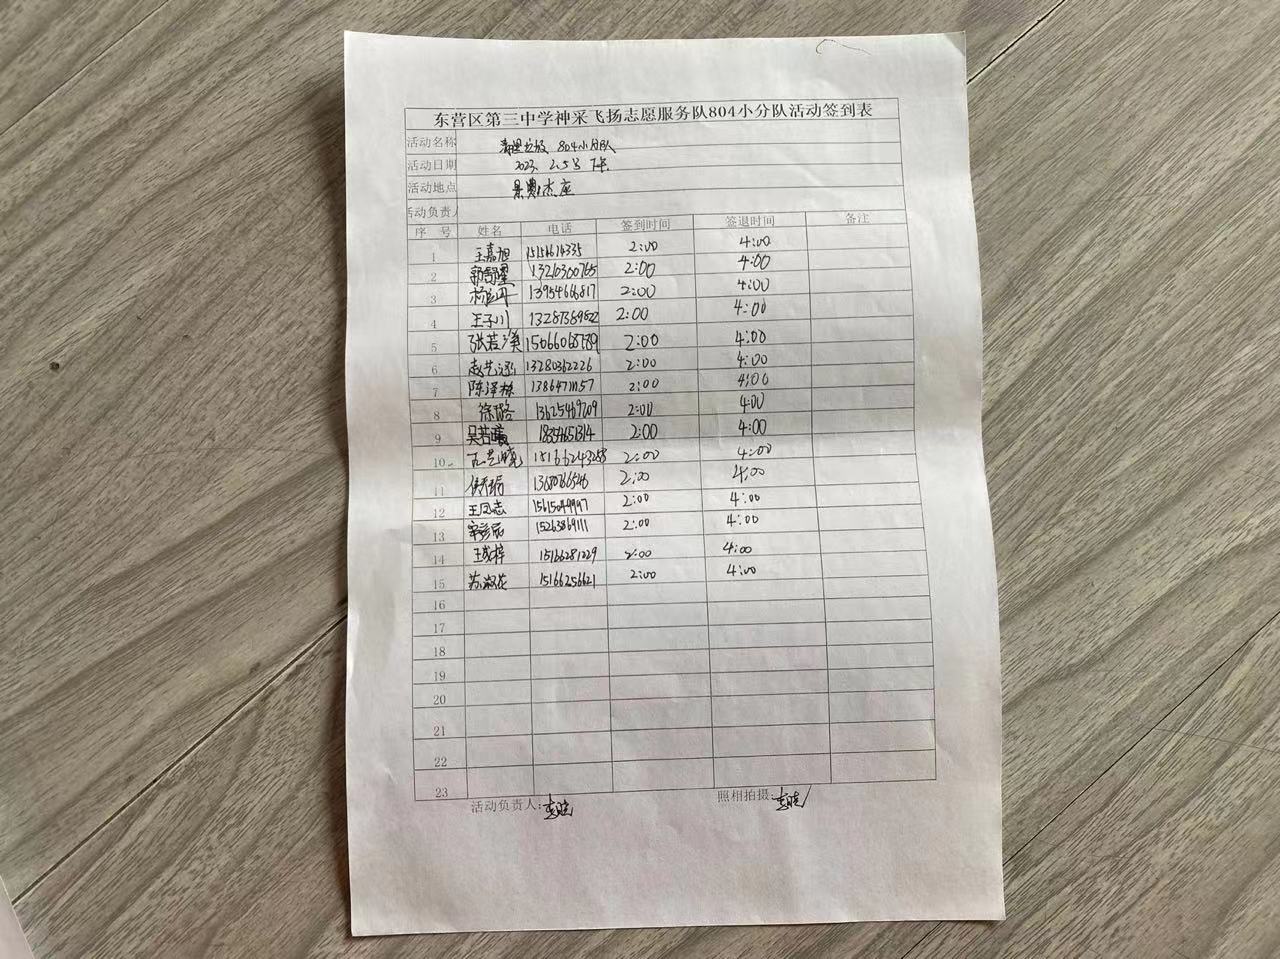 东营区第三中学神采飞扬志愿服务队804小分队活动签到表
活动名称 清理垃圾 804小分队
活动日期 2023. 2.5号 下午.
活动地点
活动负责人
序 号 姓名 电话 签到时间 签退时间 备注
1 王嘉旭 2:00 4:00
2 13210300765 2:00 4:00
3 13954666817 2:00 4:00
4 王子川 2:00 4:00
5 张若渼 2:00 4:00
6 13280362226 2:00 4:00
7 陈泽林 2:00 4:00
8 徐璐 13625469209 2:00 4:00
9 吴若曦 2:00 4:00
10 15166243258 2:00 4:00
11 2:00 4:00
12 王凤志 2:00 4:00
13 15263869111 2:00 4:00
14 15166281229 2:00 4:00
15 苏淑花 15166256621 2:00 4:00
16
17
18
19
20
21
22
23
活动负责人: 照相拍摄: